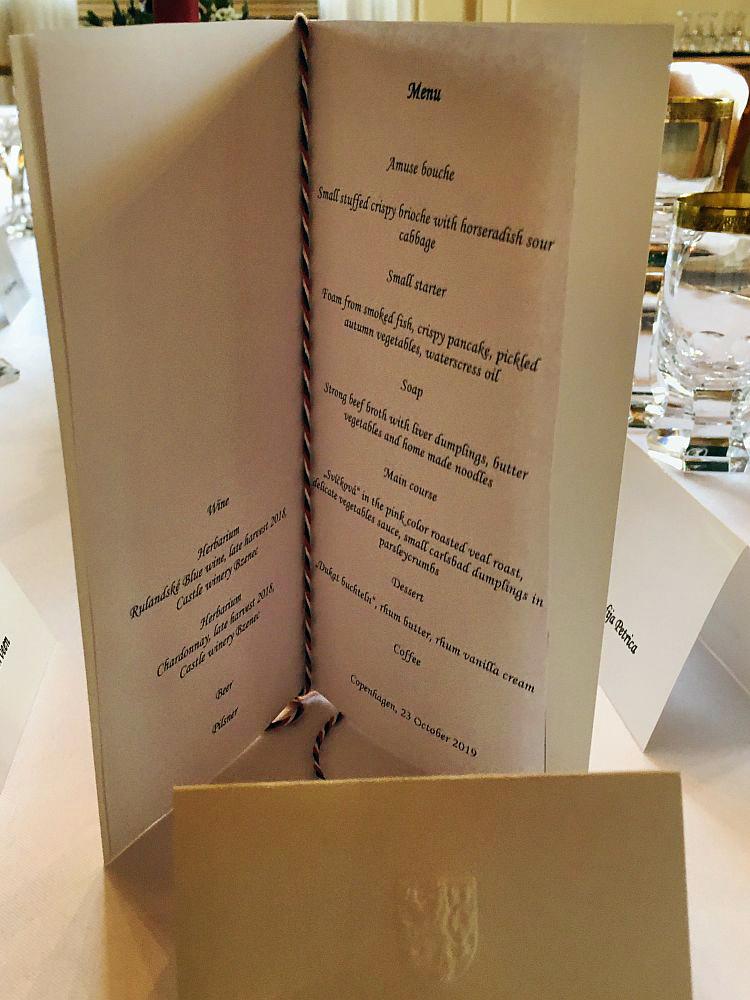 Wine
Herbarium
Rulandské Blue wine, late harvest 2018,
Castle winery Bzenec
Herbarium
Chardonnay, late harvest 2018,
Castle winery Bzenec
Beer
Pilsner
Menu
Amuse bouche
Small stuffed crispy brioche with horseradish sour
cabbage
Small starter
Foam from smoked fish, crispy pancake, pickled
autumn vegetables, waterscress oil
Soap
Strong beef broth with liver dumplings, butter
vegetables and home made noodles
Main course
„Svíčková“ in the pink color roasted veal roast,
delicate vegetables sauce, small carlsbad dumplings in
parsleycrumbs
Dessert
„Dukat buchteln“, rhum butter, rhum vanilla cream
Coffee
Copenhagen, 23 October 2019
Petrica